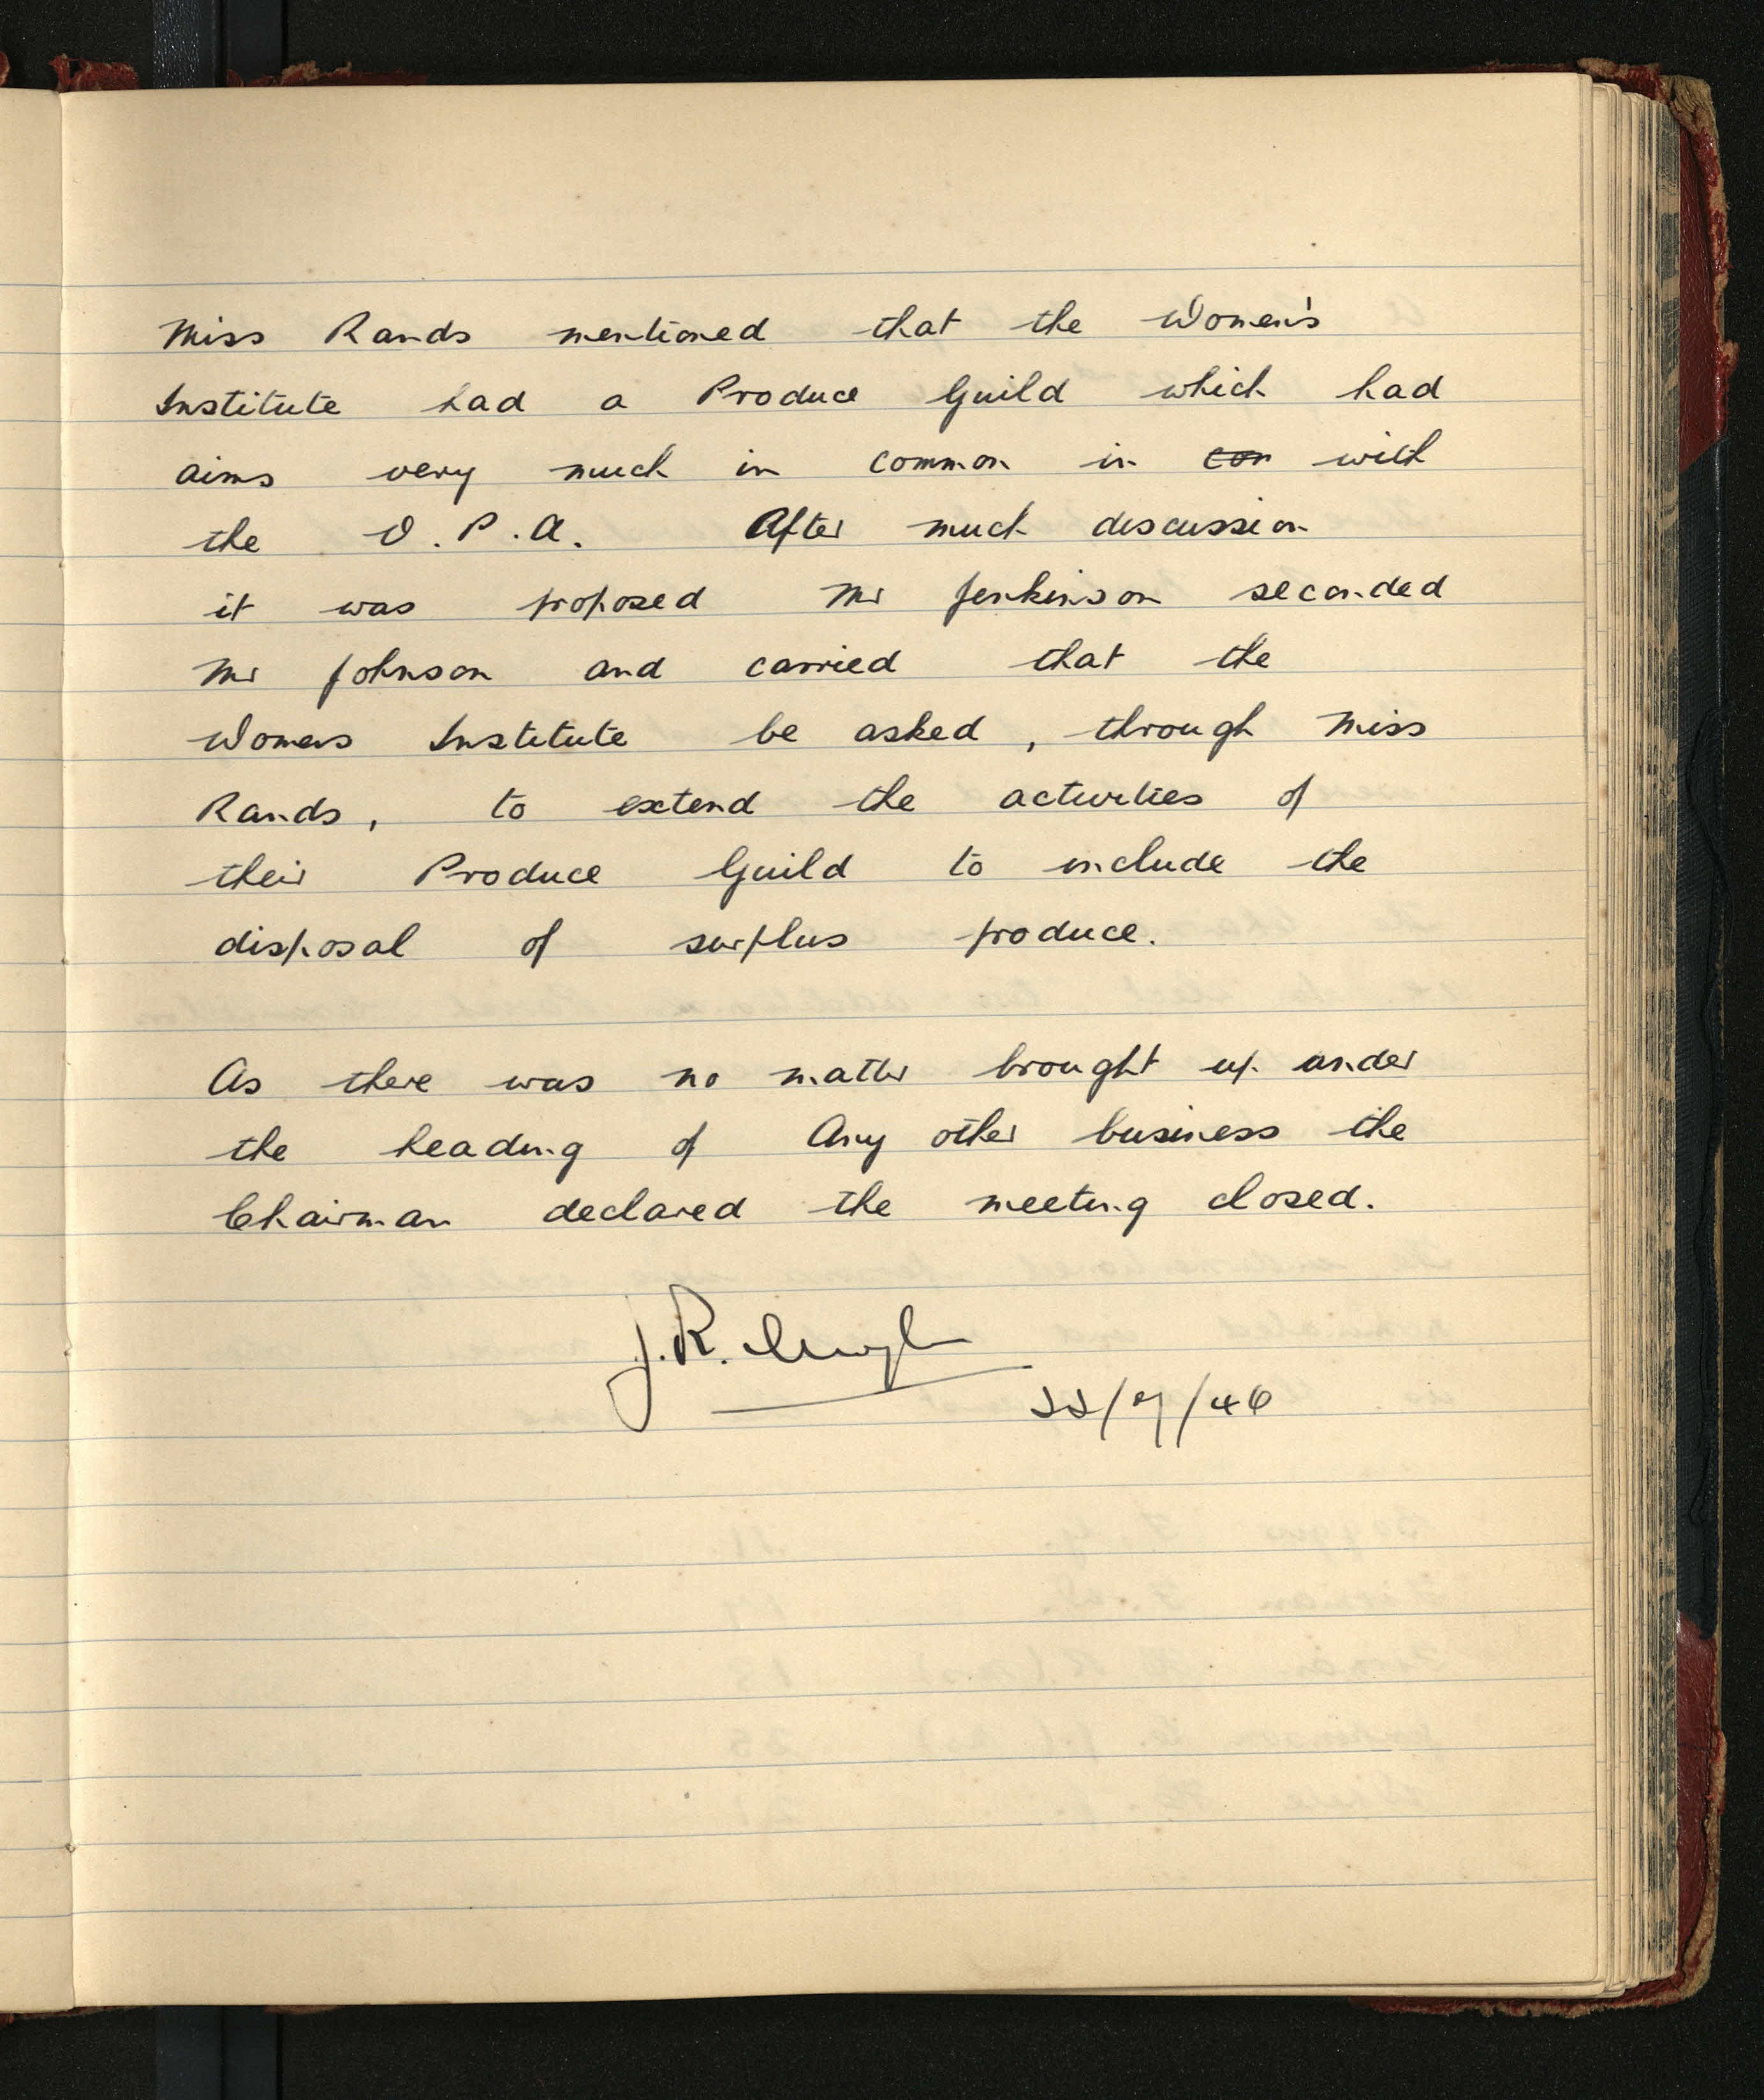 Miss Rands mentioned that the Women's
Institute had a Produce Guild which had
aims very much in common in con with
the V.P.A. After much discussion
it was proposed Mr Jenkinson seconded
Mr Johnson and carried that the
Womens Institute be asked, through Miss
Rands, to extend the activities of
their Produce Guild to include the
disposal of surplus produce.
As there was no matter brought up under
the heading of Any other business the
Chairman declared the meeting closed.
J.R.
22/7/46